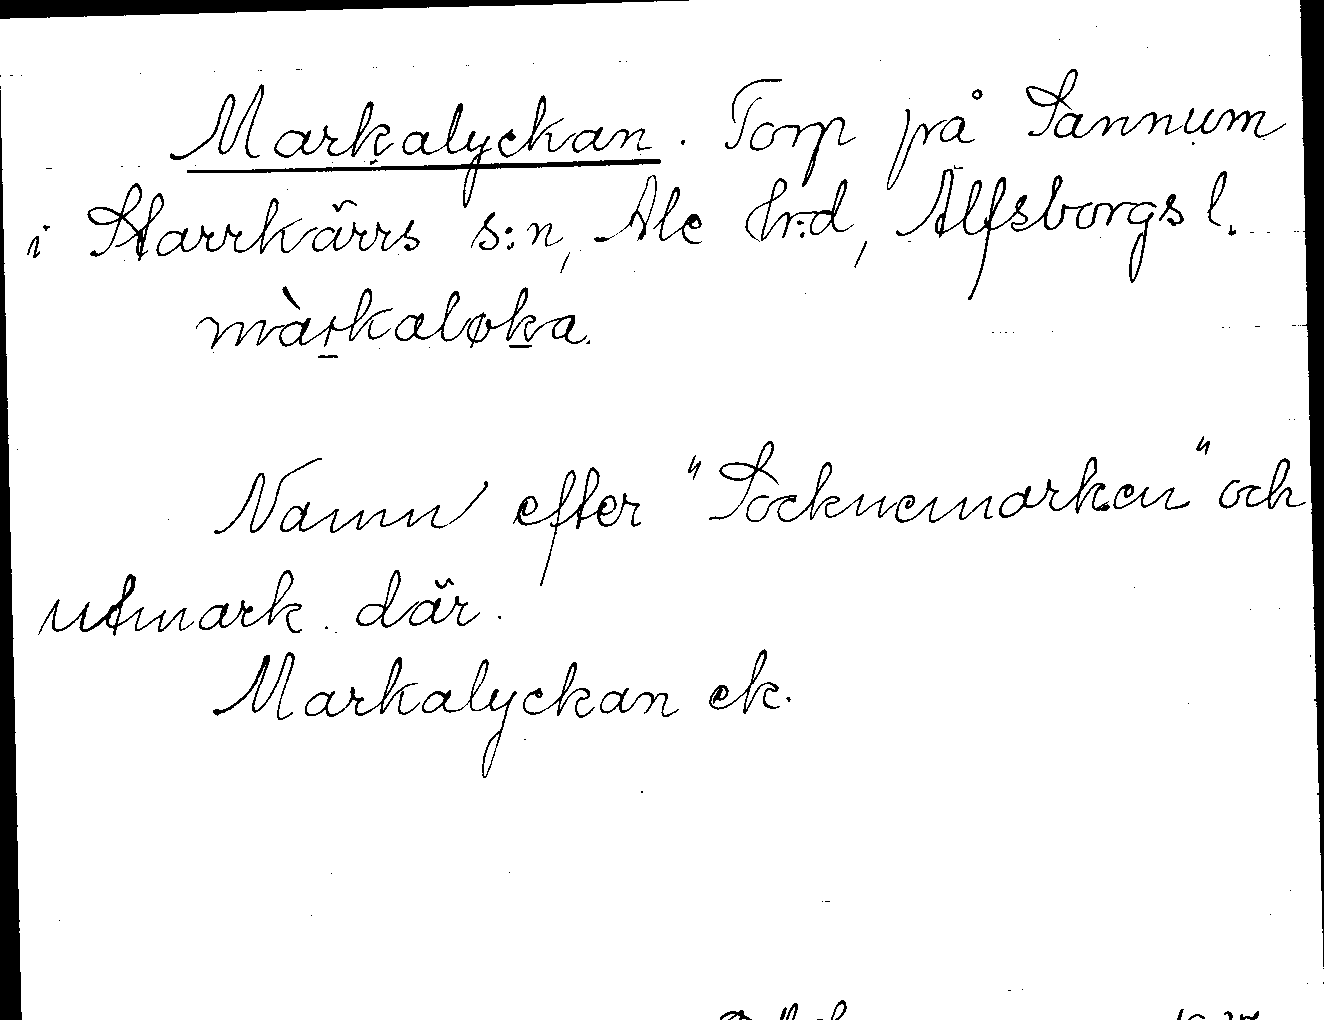 Markalyckan. Torp på Sannum
i Starrkärrs s:n, Ale hr:d, Älfsborgs l.
màrkaløka.
Namn efter "Socknemarken" och
utmark där.
Markalyckan ek.